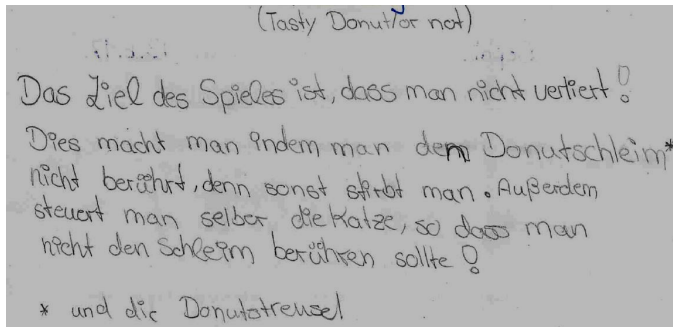 (Tasty Donut/or not)
Das Ziel des Spieles ist, dass man nicht verliert!
Dies macht man indem man dem Donutschleim*
nicht berührt, denn sonst stirbt man. Außerdem
steuert man selber die Katze, so dass man
nicht den Schleim berühren sollte!
* und die Donutstreusel